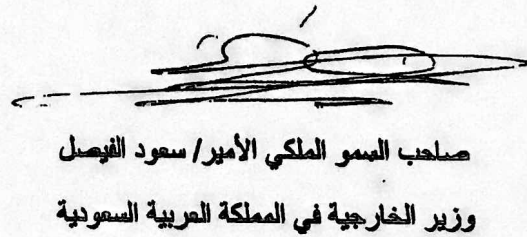 صاحب السمو الملكي الأمير/ سعود الفيصل
وزير الخارجية في المملكة العربية السعودية